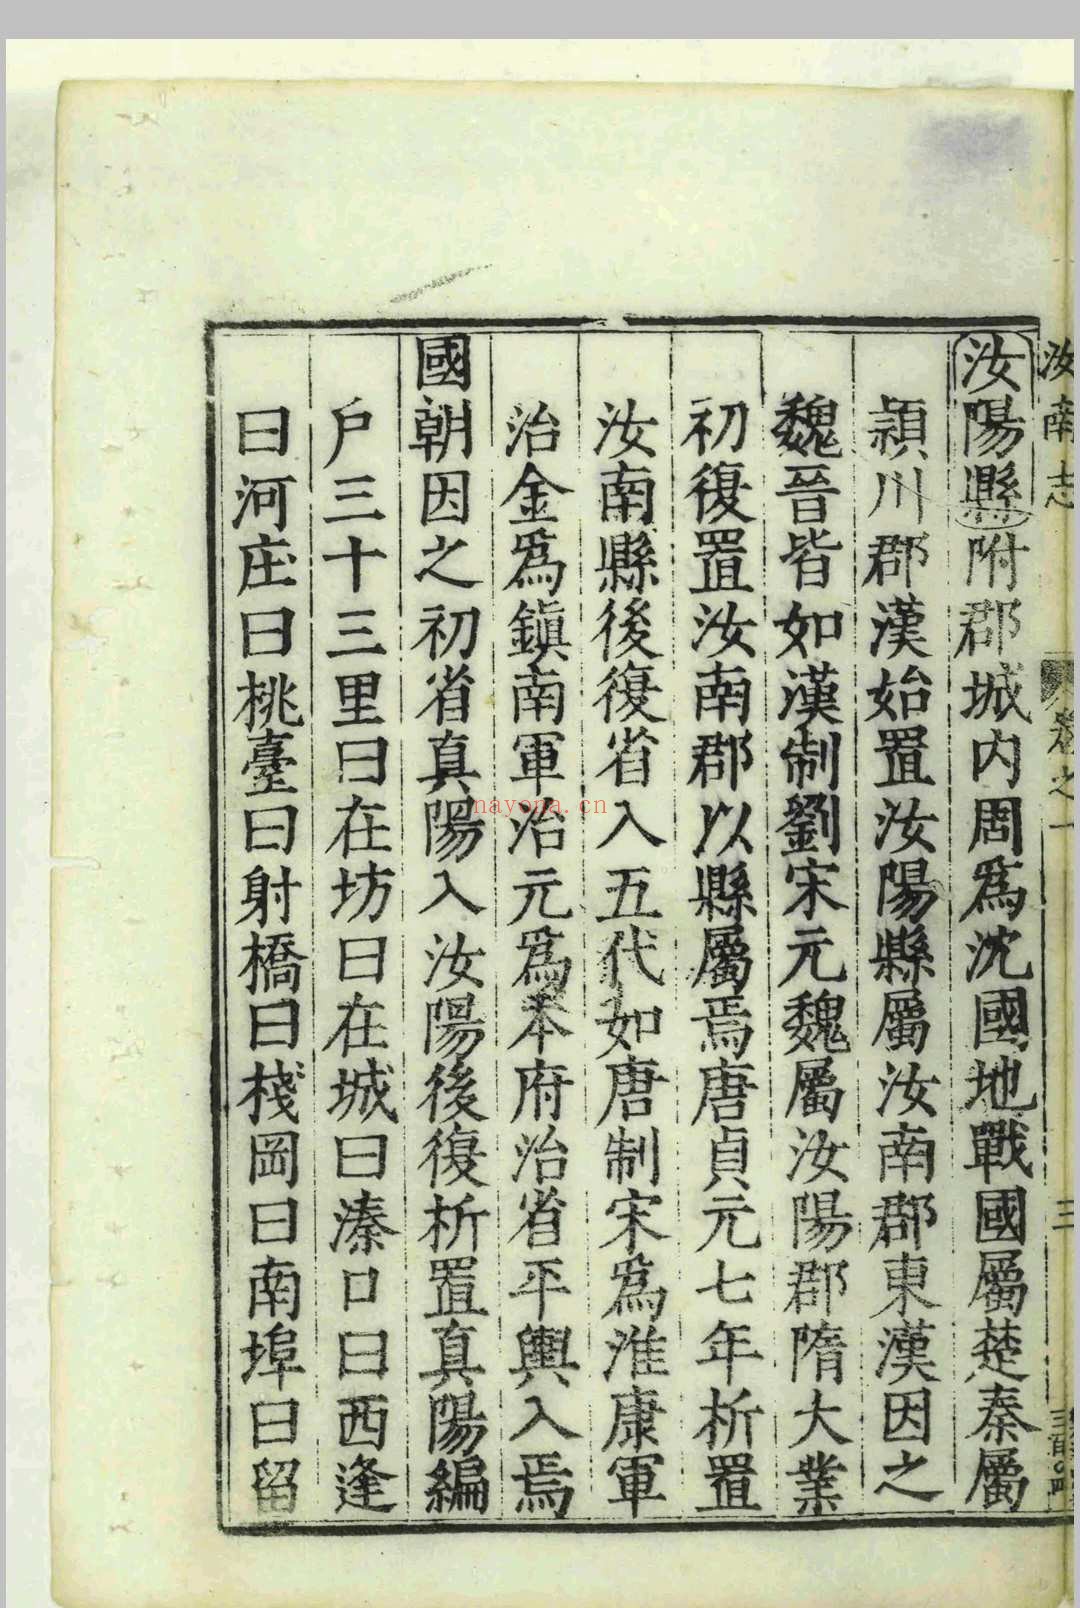 汝南志 卷之一 三
汝陽縣附郡城内周爲沈國地戰國屬楚秦屬
潁川郡漢始置汝陽縣屬汝南郡東漢因之
魏晉皆如漢制劉宋元魏屬汝陽郡隋大業
初復置汝南郡以縣屬焉唐貞元七年析置
汝南縣後復省入五代如唐制宋爲淮康軍
治金爲鎭南軍治元爲本府治省平輿入焉
國朝因之初省真陽入汝陽後復析置真陽編
戶三十三里曰在坊曰在城曰溱口曰西逢
曰河庄曰桃臺曰射橋曰棧岡曰南埠曰留
nayona.cn